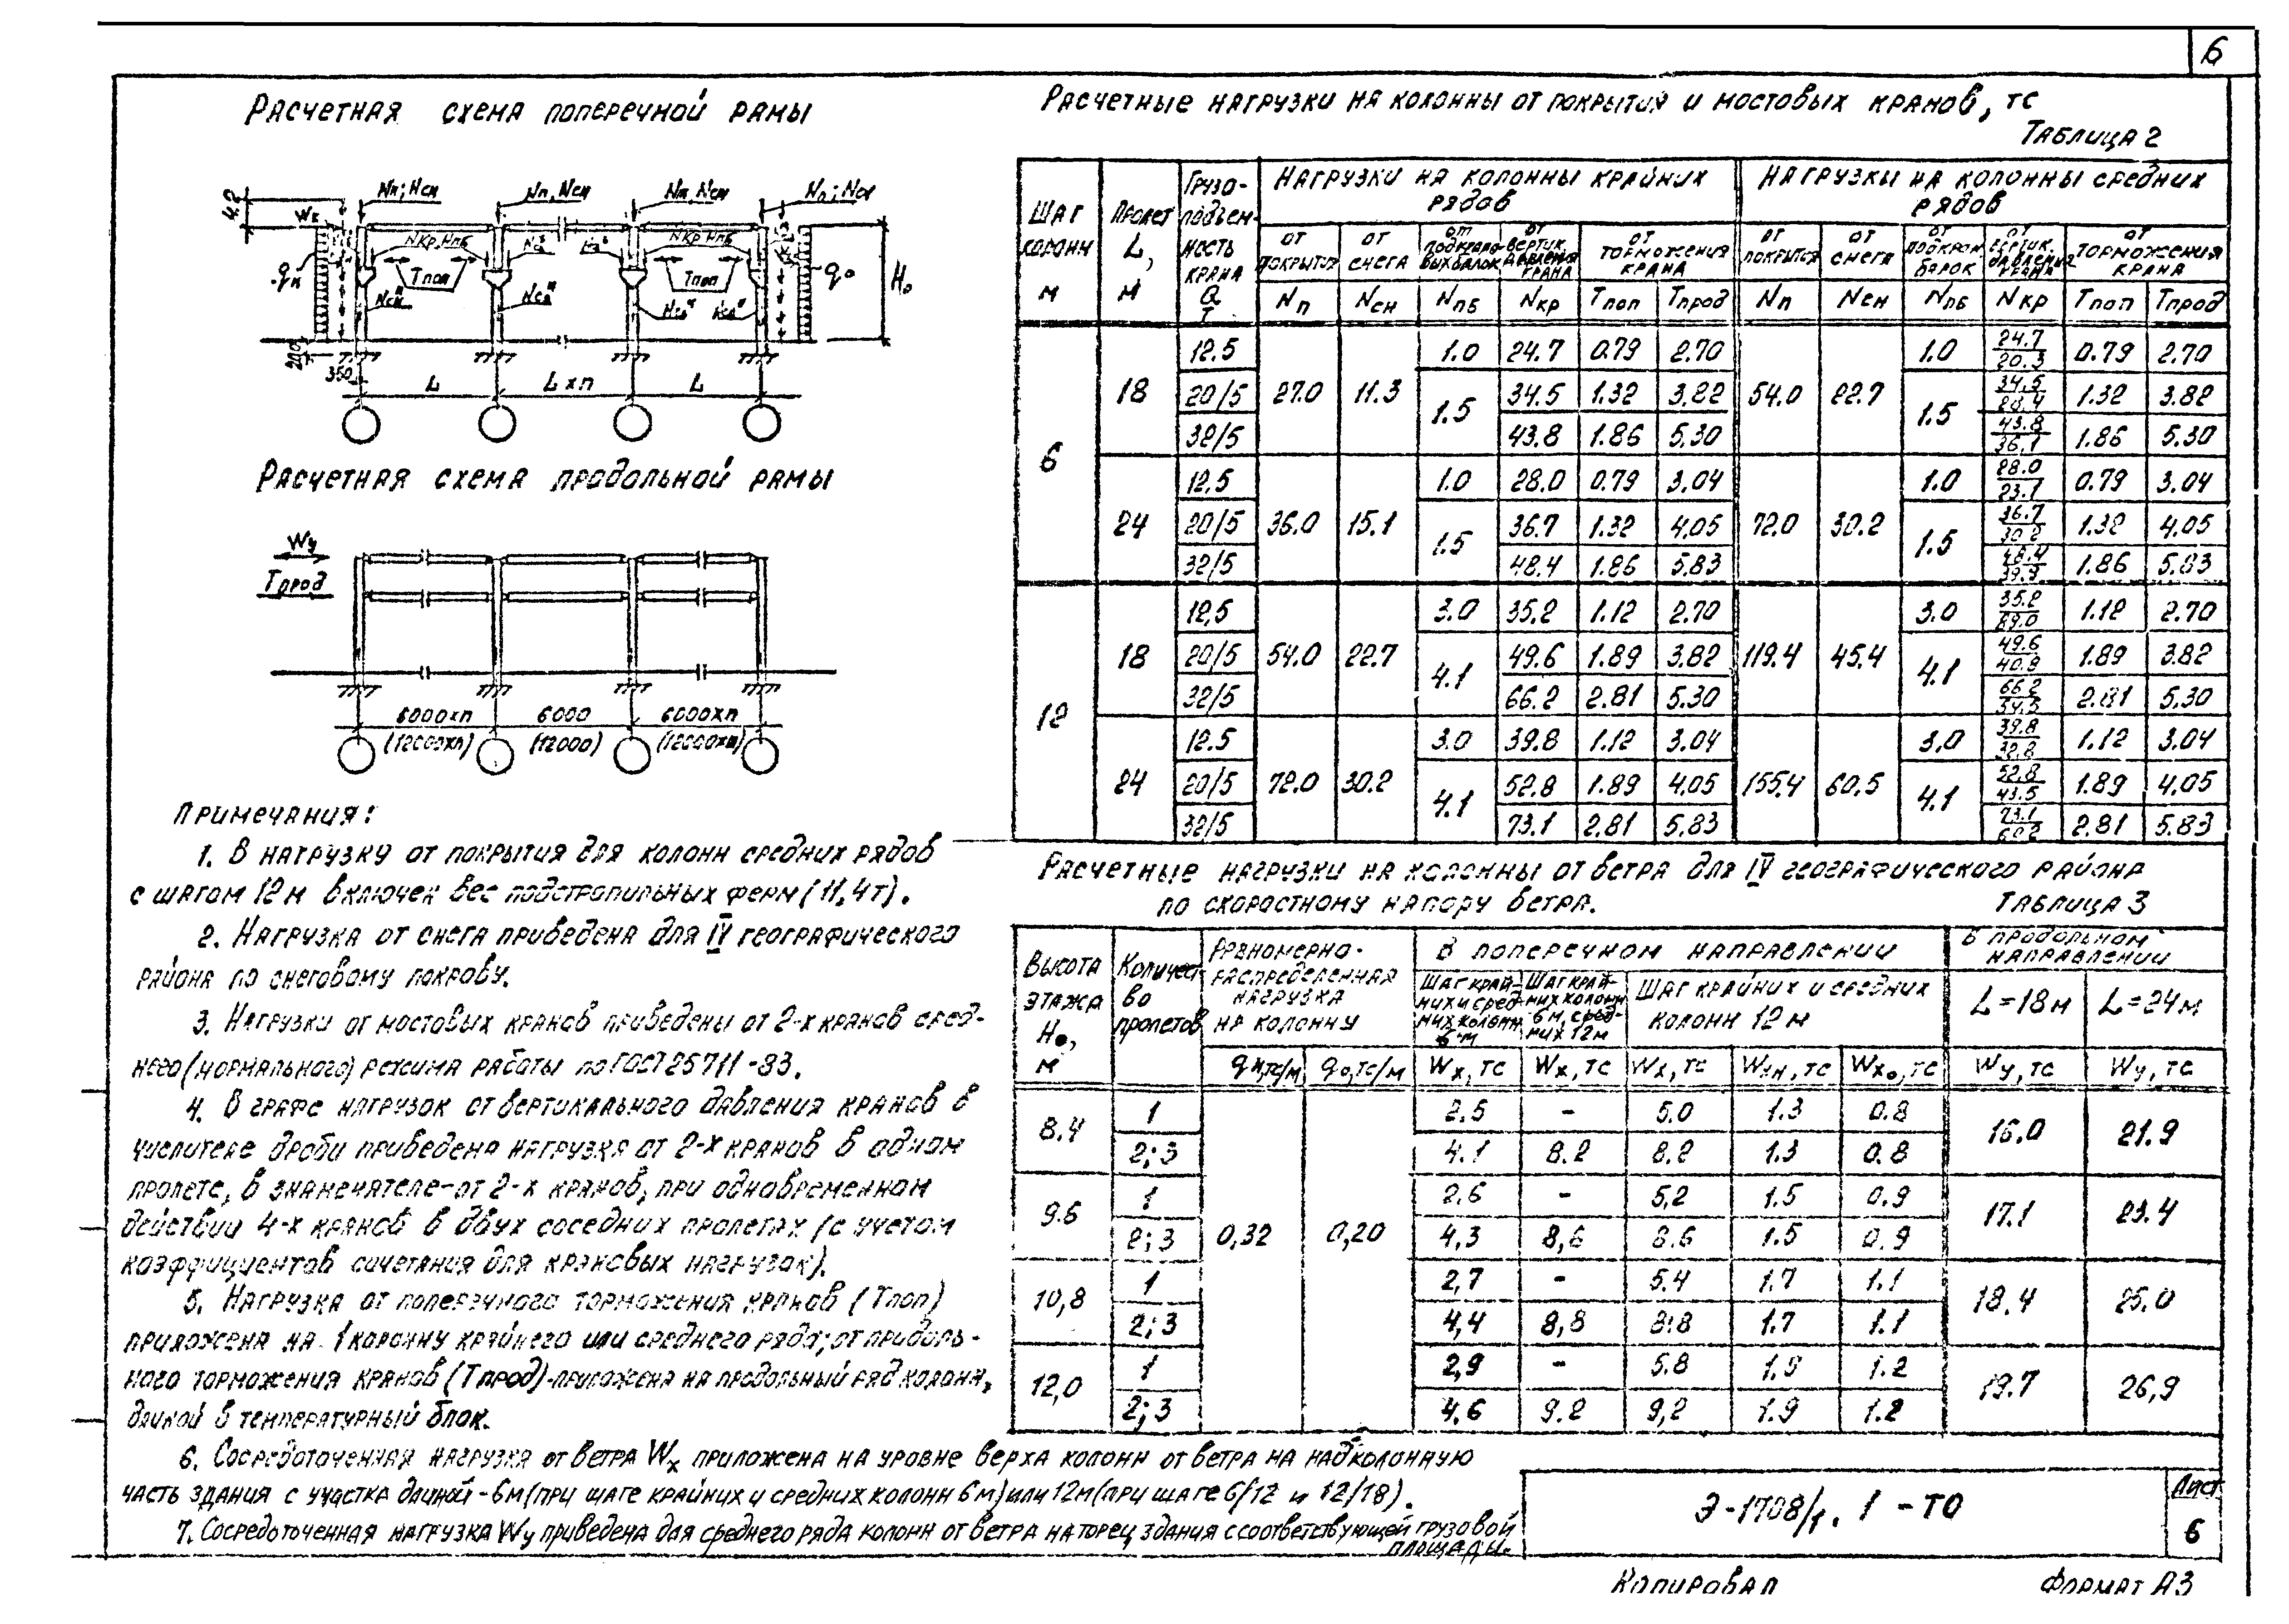 6
Расчетная схема поперечной рамы
Nп; Nсн
Nп, Nсн
Nп, Nсн
4.2
Nкр, Nпб
Nкр, Nпб
Тпоп
Тпоп
H₀
200
350
L
L×п
L
Расчетная схема продольной рамы
Wу
Тпрод
6000×п
6000
6000×п
(12000×п)
(12000)
(12000×п)
Примечания:
1. В нагрузку от покрытия для колонн средних рядов
с шагом 12 м включен вес подстропильных ферм (11,4т).
2. Нагрузка от снега приведена для IV географического
района по снеговому покрову.
3. Нагрузки от мостовых кранов приведены от 2-х кранов сред-
него (нормального) режима работы по ГОСТ 25711-83.
4. В графе нагрузок от вертикального давления кранов в
числителе дроби приведена нагрузка от 2-х кранов в одном
пролете, в знаменателе-от 2-х кранов, при одновременном
действии 4-х кранов в двух соседних пролетах (с учетом
коэффициентов сочетания для крановых нагрузок).
5. Нагрузка от поперечного торможения кранов (Тпоп)
приложена на 1 колонну крайнего или среднего ряда; от продоль-
ного торможения кранов (Тпрод)-приложена на продольный ряд колонн,
длиной в температурный блок.
6. Сосредоточенная нагрузка от ветра Wх приложена на уровне верха колонн от ветра на надколонную
часть здания с участка длиной - 6м (при шаге крайних и средних колонн 6м) или 12м (при шаге 6/12 и 12/18).
7. Сосредоточенная нагрузка Wу приведена для среднего ряда колонн от ветра на торец здания с соответствующей грузовой
площади.
Расчетные нагрузки на колонны от покрытия и мостовых кранов, тс
Таблица 2
Шаг колонн м | Пролет L, м | Грузо-подъем-ность крана Q т | Нагрузки на колонны крайних рядов | Нагрузки на колонны средних рядов
от покрытия | от снега | от подкрановых балок | от вертик. давления крана | от торможения крана | от покрытия | от снега | от подкран. балок | от вертик. давления крана | от торможения крана
Nп | Nсн | Nпб | Nкр | Тпоп | Тпрод | Nп | Nсн | Nпб | Nкр | Тпоп | Тпрод
6 | 18 | 12.5 | 27.0 | 11.3 | 1.0 | 24.7 | 0.79 | 2.70 | 54.0 | 22.7 | 1.0 | 24.7/20.3 | 0.79 | 2.70
20/5 | 1.5 | 34.5 | 1.32 | 3.82 | 1.5 | 34.5/28.4 | 1.32 | 3.82
32/5 | 43.8 | 1.86 | 5.30 | 43.8/36.1 | 1.86 | 5.30
24 | 12.5 | 36.0 | 15.1 | 1.0 | 28.0 | 0.79 | 3.04 | 72.0 | 30.2 | 1.0 | 28.0/23.1 | 0.79 | 3.04
20/5 | 1.5 | 36.7 | 1.32 | 4.05 | 1.5 | 36.7/30.2 | 1.32 | 4.05
32/5 | 48.4 | 1.86 | 5.83 | 48.4/39.9 | 1.86 | 5.83
12 | 18 | 12,5 | 54.0 | 22.7 | 3.0 | 35.2 | 1.12 | 2.70 | 119.4 | 45.4 | 3.0 | 35.2/29.0 | 1.12 | 2.70
20/5 | 4.1 | 49.6 | 1.89 | 3.82 | 4.1 | 49.6/40.9 | 1.89 | 3.82
32/5 | 66.2 | 2.81 | 5.30 | 66.2/54.5 | 2.81 | 5.30
24 | 12.5 | 72.0 | 30.2 | 3.0 | 39.8 | 1.12 | 3.04 | 155.4 | 60.5 | 3.0 | 39.8/32.8 | 1.12 | 3.04
20/5 | 4.1 | 52.8 | 1.89 | 4.05 | 4.1 | 52.8/43.5 | 1.89 | 4.05
32/5 | 73.1 | 2.81 | 5.83 | 73.1 | 2.81 | 5.83
Расчетные нагрузки на колонны от ветра для IV географического района
по скоростному напору ветра.
Таблица 3
Высота этажа H₀, м | Количест-во пролетов | Равномерно-распределенная нагрузка на колонну | В поперечном направлении | В продольном направлении
Шаг край-них и сред-них колонн 6 м | Шаг край-них колонн 6 м, сред-них 12м | Шаг крайних и средних колонн 12 м | L=18м | L=24м
qн,тс/м | q₀,тс/м | Wх, тс | Wх, тс | Wх, тс | Wхн, тс | Wх₀, тс | Wу, тс | Wу, тс
8.4 | 1 | 0,32 | 0,20 | 2.5 | - | 5.0 | 1.3 | 0.8 | 16.0 | 21.9
2; 3 | 4.1 | 8.2 | 8.2 | 1.3 | 0.8
9.6 | 1 | 2,6 | - | 5,2 | 1.5 | 0.9 | 17.1 | 23.4
2; 3 | 4,3 | 8,6 | 8.6 | 1.5 | 0.9
10,8 | 1 | 2,7 | - | 5.4 | 1.7 | 1.1 | 18.4 | 25.0
2; 3 | 4,4 | 8,8 | 8.8 | 1.7 | 1.1
12,0 | 1 | 2,9 | - | 5.8 | 1.9 | 1.2 | 19.7 | 26,9
2; 3 | 4,6 | 9.2 | 9,2 | 1.9 | 1.2
Э-1708/1. 1 - ТО
Лист
6
Копировал
Формат А3